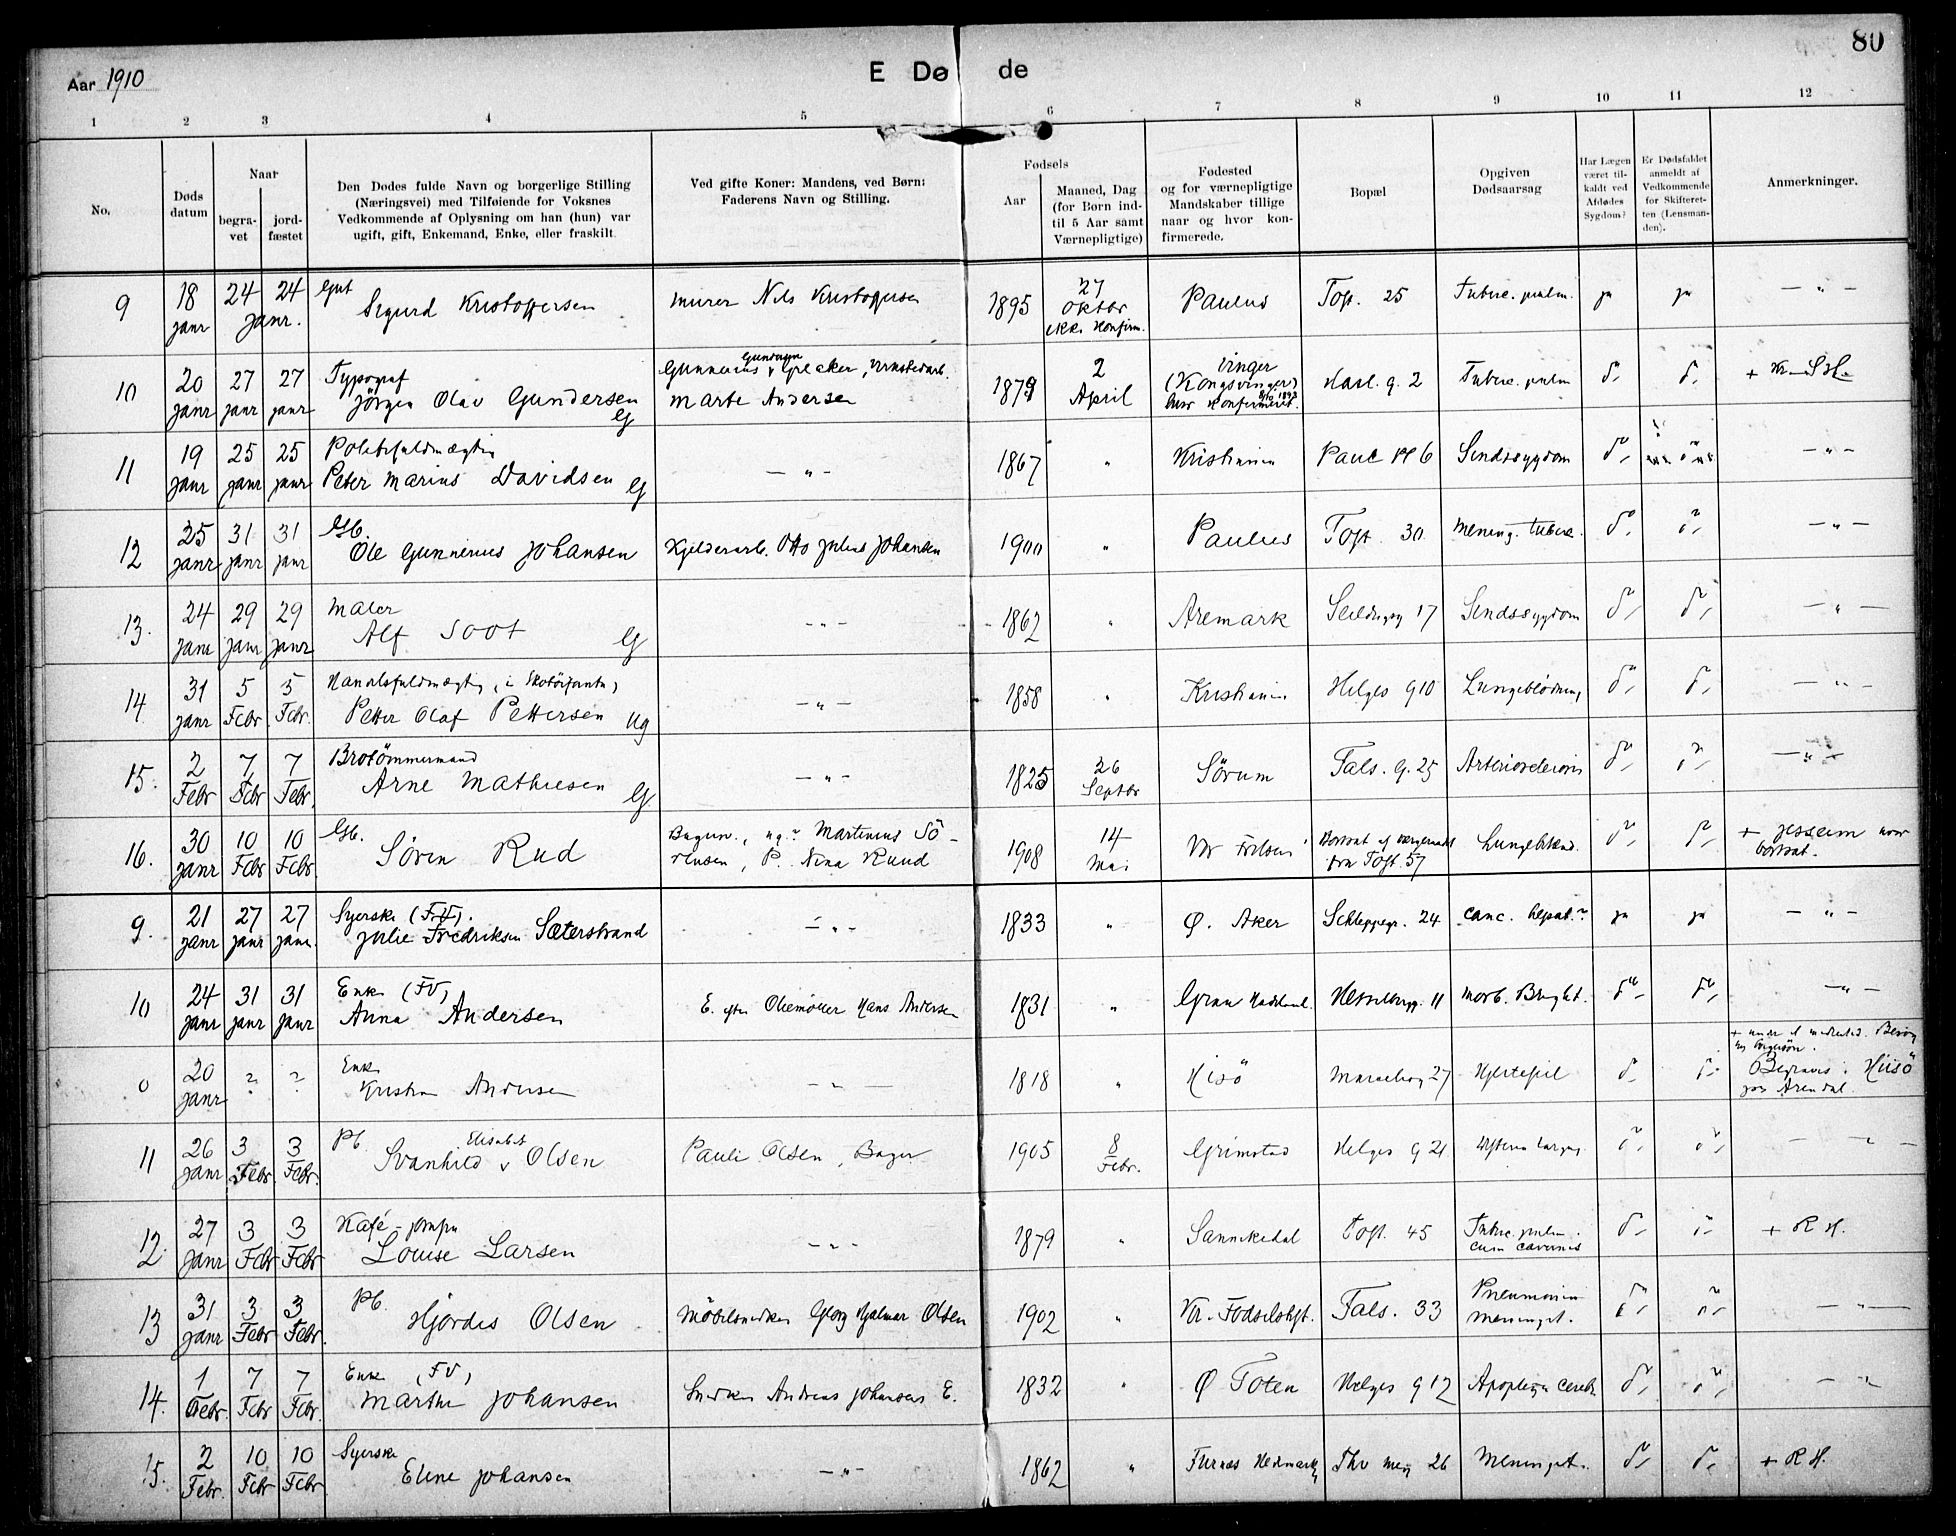 80
Aar 1910
E Dø de
1 2 3 4 5 6 7 8 9 10 11 12
No.
Døds datum
Naar
begra-vet
jord-fæstet
Den Dødes fulde Navn og borgerlige Stilling
(Næringsvei) med Tilføiende for Voksnes
Vedkommende af Oplysning om han (hun) var
ugift, gift, Enkemand, Enke, eller fraskilt.
Ved gifte Koner: Mandens, ved Børn:
Faderens Navn og Stilling.
Fødsels
Aar
Maaned, Dag
(for Børn ind-
til 5 Aar samt
Værnepligtige)
Fødested
og for værnepligtige
Mandskaber tillige
naar og hvor kon-
firmerede.
Bopæl
Opgiven
Dødsaarsag
Har Lægen
været til-
kaldt ved
Afdødes
Sygdom?
Er Dødsfaldet
anmeldt af
Vedkommende
for Skifteret-
ten (Lensman-
den).
Anmerkninger.
9 18 janr 24 24 janr. Gut Sigurd Kristoffersen murer Nils Kristoffersen 1895 27 Oktbr ikke Konfirm. Paulus Toft. 25 Tuberc. pulm. ja ja — „ —
10 20 janr 27 janr 27 janr Typograf Jörgen Olav Gundersen G Gunnerius Gundersen Marte Andersen 1879 2 April Vinger (Kongsvinger) Konfirmeret. Karl. g. 2 Tuberc. pulm do do +
11 19 janr 25 janr 25 janr Politifuldmægtig Peter Marius Davidsen G — „ — 1867 „ Kristiania Paul Pl 6 Sindssygdom do — „ —
12 25 janr 31 janr 31 janr Gb. Ole Gunnerius Johansen Kjelderarb. Otto Julius Johansen 1900 „ Paulus Toft. 30 Mening. tuberc. do do — „ —
13. 24 janr 29 janr 29 janr Maler Alf Soot G — „ — 1862 „ Aremark 17 Sindssygdom do do — „ —
14 31 janr 5 Febr. 5 Febr. Handelsfuldmægtig (i Skotöiforretn) Petter Olaf Pettersen ug — „ — 1858 „ Kristiania Helges g 10 Lungeblödning do do — „ —
15. 2 Febr 7 Febr 7 Febr. Brotömmermand Arne Mathiesen G. — „ — 1825 26 Septbr Sörum Fals. g. 25 Arteriosclerosis do do — „ —
16. 30 janr 10 Febr 10 Febr. Gb. Sören Rud Martinius Sö-
rensen, P. Nina Ruud 1908 14 Mai Vor Frelsers fra Toft. 57 Lungebetænd. do do + Jessheim
9. 21 janr 27 janr 27 janr. Syerske (FV). Julie Fredriksen Sæterstrand — „ — 1833 „ Ø. Aker Schleppegr. 24 canc. hepat. ja ja — „ —
10 24 janr 31 janr 31 janr Enke (FV) Anna Andersen E. efter Oliemöller Hans Andersen 1831 „ Gran Hadeland Hesselbergg. 11 Morb. Bright. do do — „ —
0 20 janr ? ? Enke Kristin Andersen — „ — 1818 „ Hisö 27 Hjertefeil do do Begraves i Hisö
pr Arendal.
11 26 janr 3 Febr. 3 Febr. Pb. Svanhild Elisabet Olsen Pauli Olsen, Bager 1905 8 Febr. Grimstad Helges g 21 do do — „ —
12. 27 janr 3 Febr 3 Febr Kafé-jomfru Louise Larsen — „ — 1879 „ Sannikedal Toft. 45 Tuberc. pulm. cum cavernis do do + R H.
13 31 janr 3 Febr 3 Febr. Pb. Hjördis Olsen Möbelsnedker Georg Hjalmar Olsen 1902 „ Kr. Födselsstift. Fals. 33 Pneumonia meningit. do do — „ —
14. 1 Febr. 7 Febr 7 Febr. Enke (FV) Marthe Johansen Snedker Andreas Johansens E. 1832 „ Ø Toten Helges g 12 Apoplexia cerebr. do do — „ —
15. 2 Febr. 10 Febr 10 Febr Syerske Eline Johansen — „ — 1862 „ Furnes Hedmark Thv Mey 26 Meningit. do do + R H.